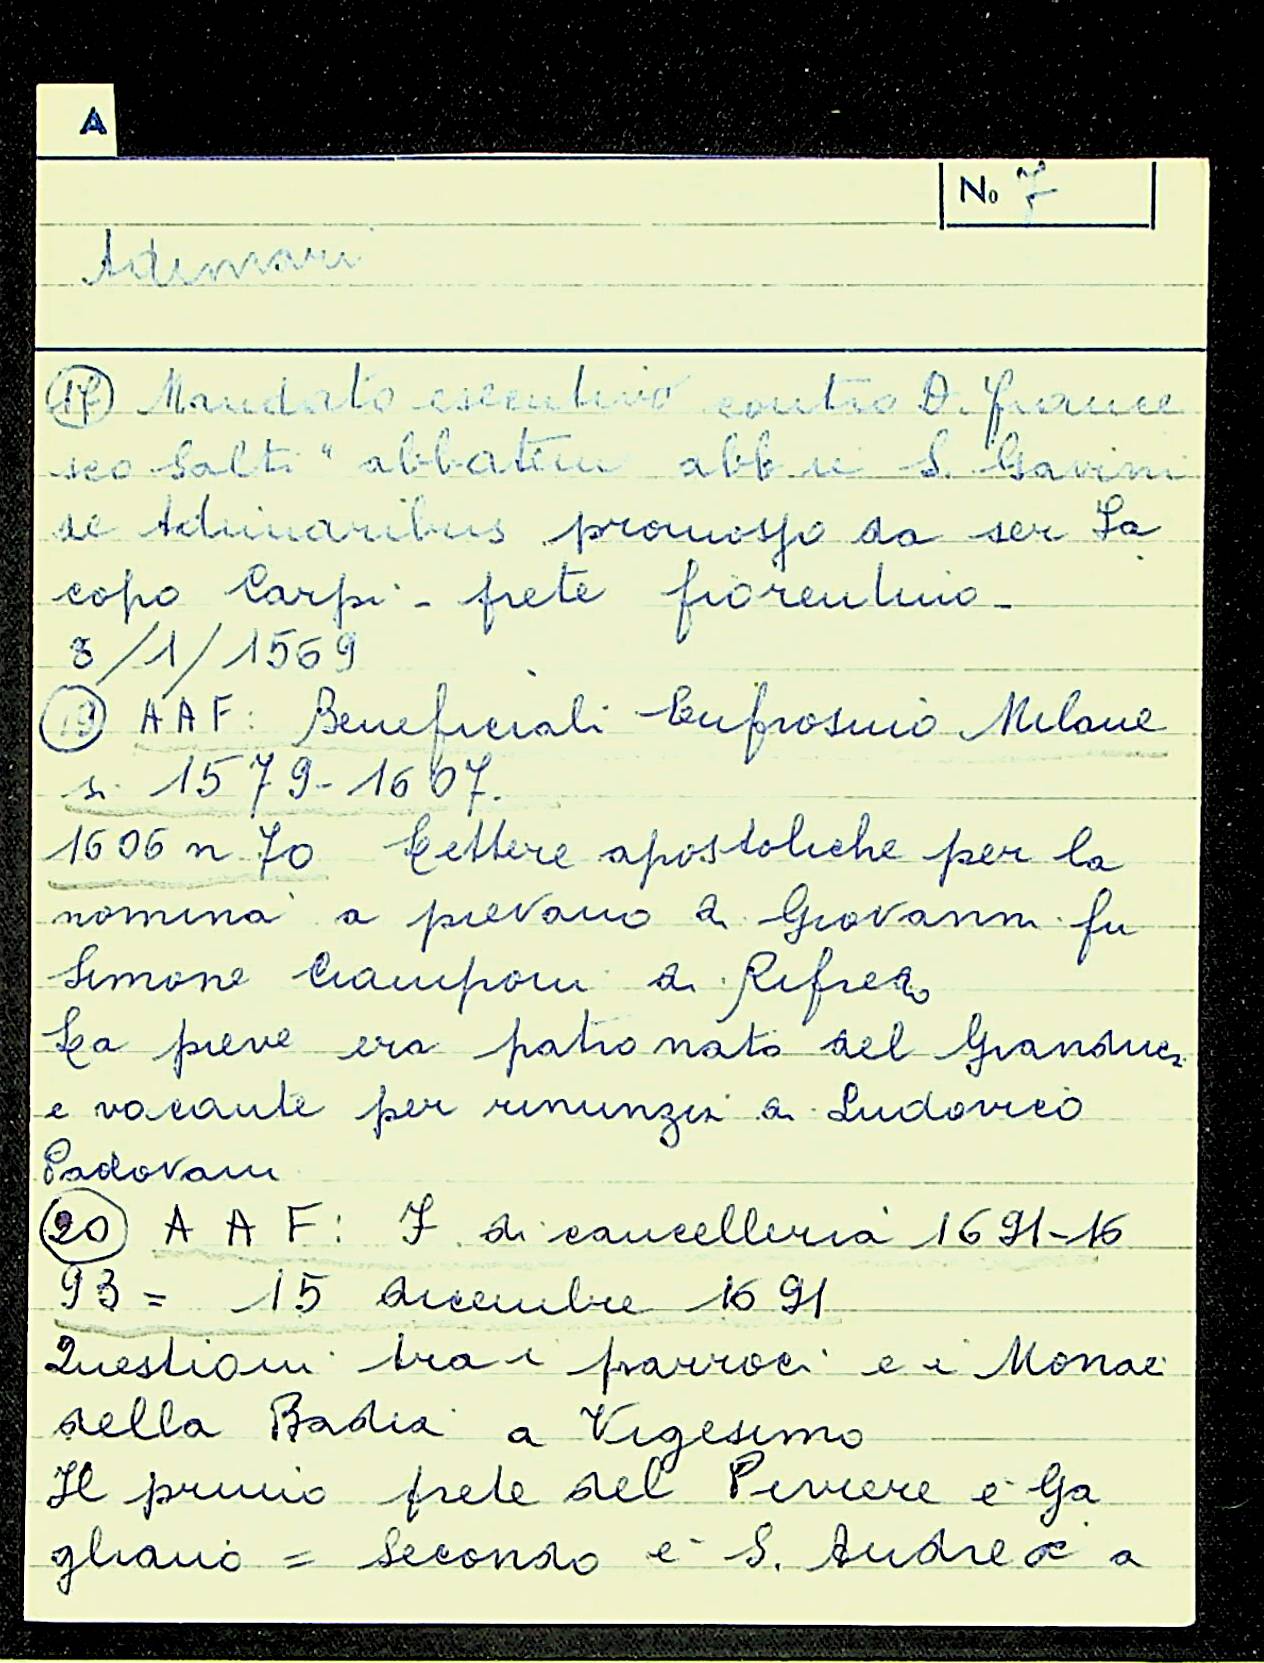 A
No 7
Adimari
17 Mandato esecutivo contro D. France
sco Salti "abbatem abb ie S. Gavini
de Adimaribus promosso da ser Ja
copo Carpi - prete fiorentino -
8/1/1569
19 AAF: Beneficiali Eufrosino Milane
si 1579-1607.
1606 n 70 Lettere apostoliche per la
nomina a pievano di Giovanni fu
Simone Ciamponi di Rifredo
La pieve era patronato del Granduca
e vacante per rinunzia di Ludovico
Padovani
20 A A F: 7 di cancelleria 1691-16
93 = 15 dicembre 1691
Questioni tra i parroci e i Monaci
della Badia a Vigesimo
Il primo prete del Piviere è Ga
gliano = secondo è S. Andrea a